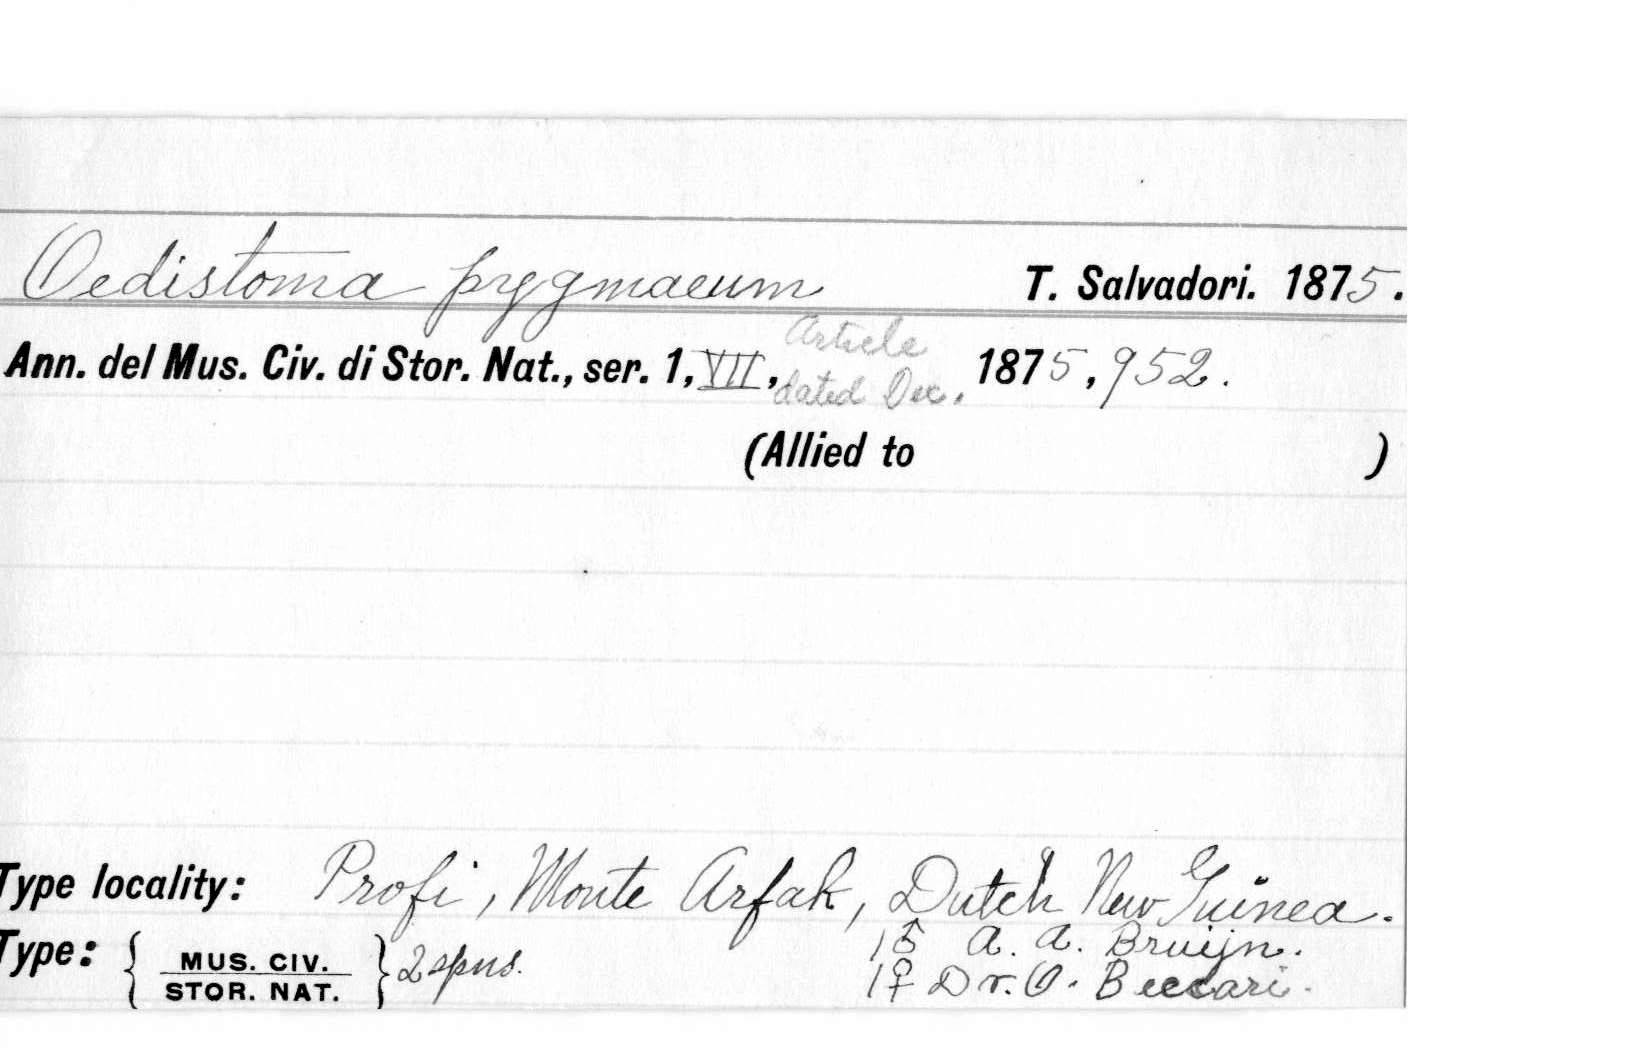 Oedistoma pygmaeum T. Salvadori. 1875.
Ann. del Mus. Civ. di Stor. Nat., ser. 1, VII, Article dated Dec. 1875, 952.
(Allied to )
Type locality: Profi, Monte Arfak, Dutch New Guinea.
Type: { MUS. CIV. STOR. NAT. } 2 spns. 1 ♂ A. A. Bruijn.
1 ♀ Dr. O. Beccari.